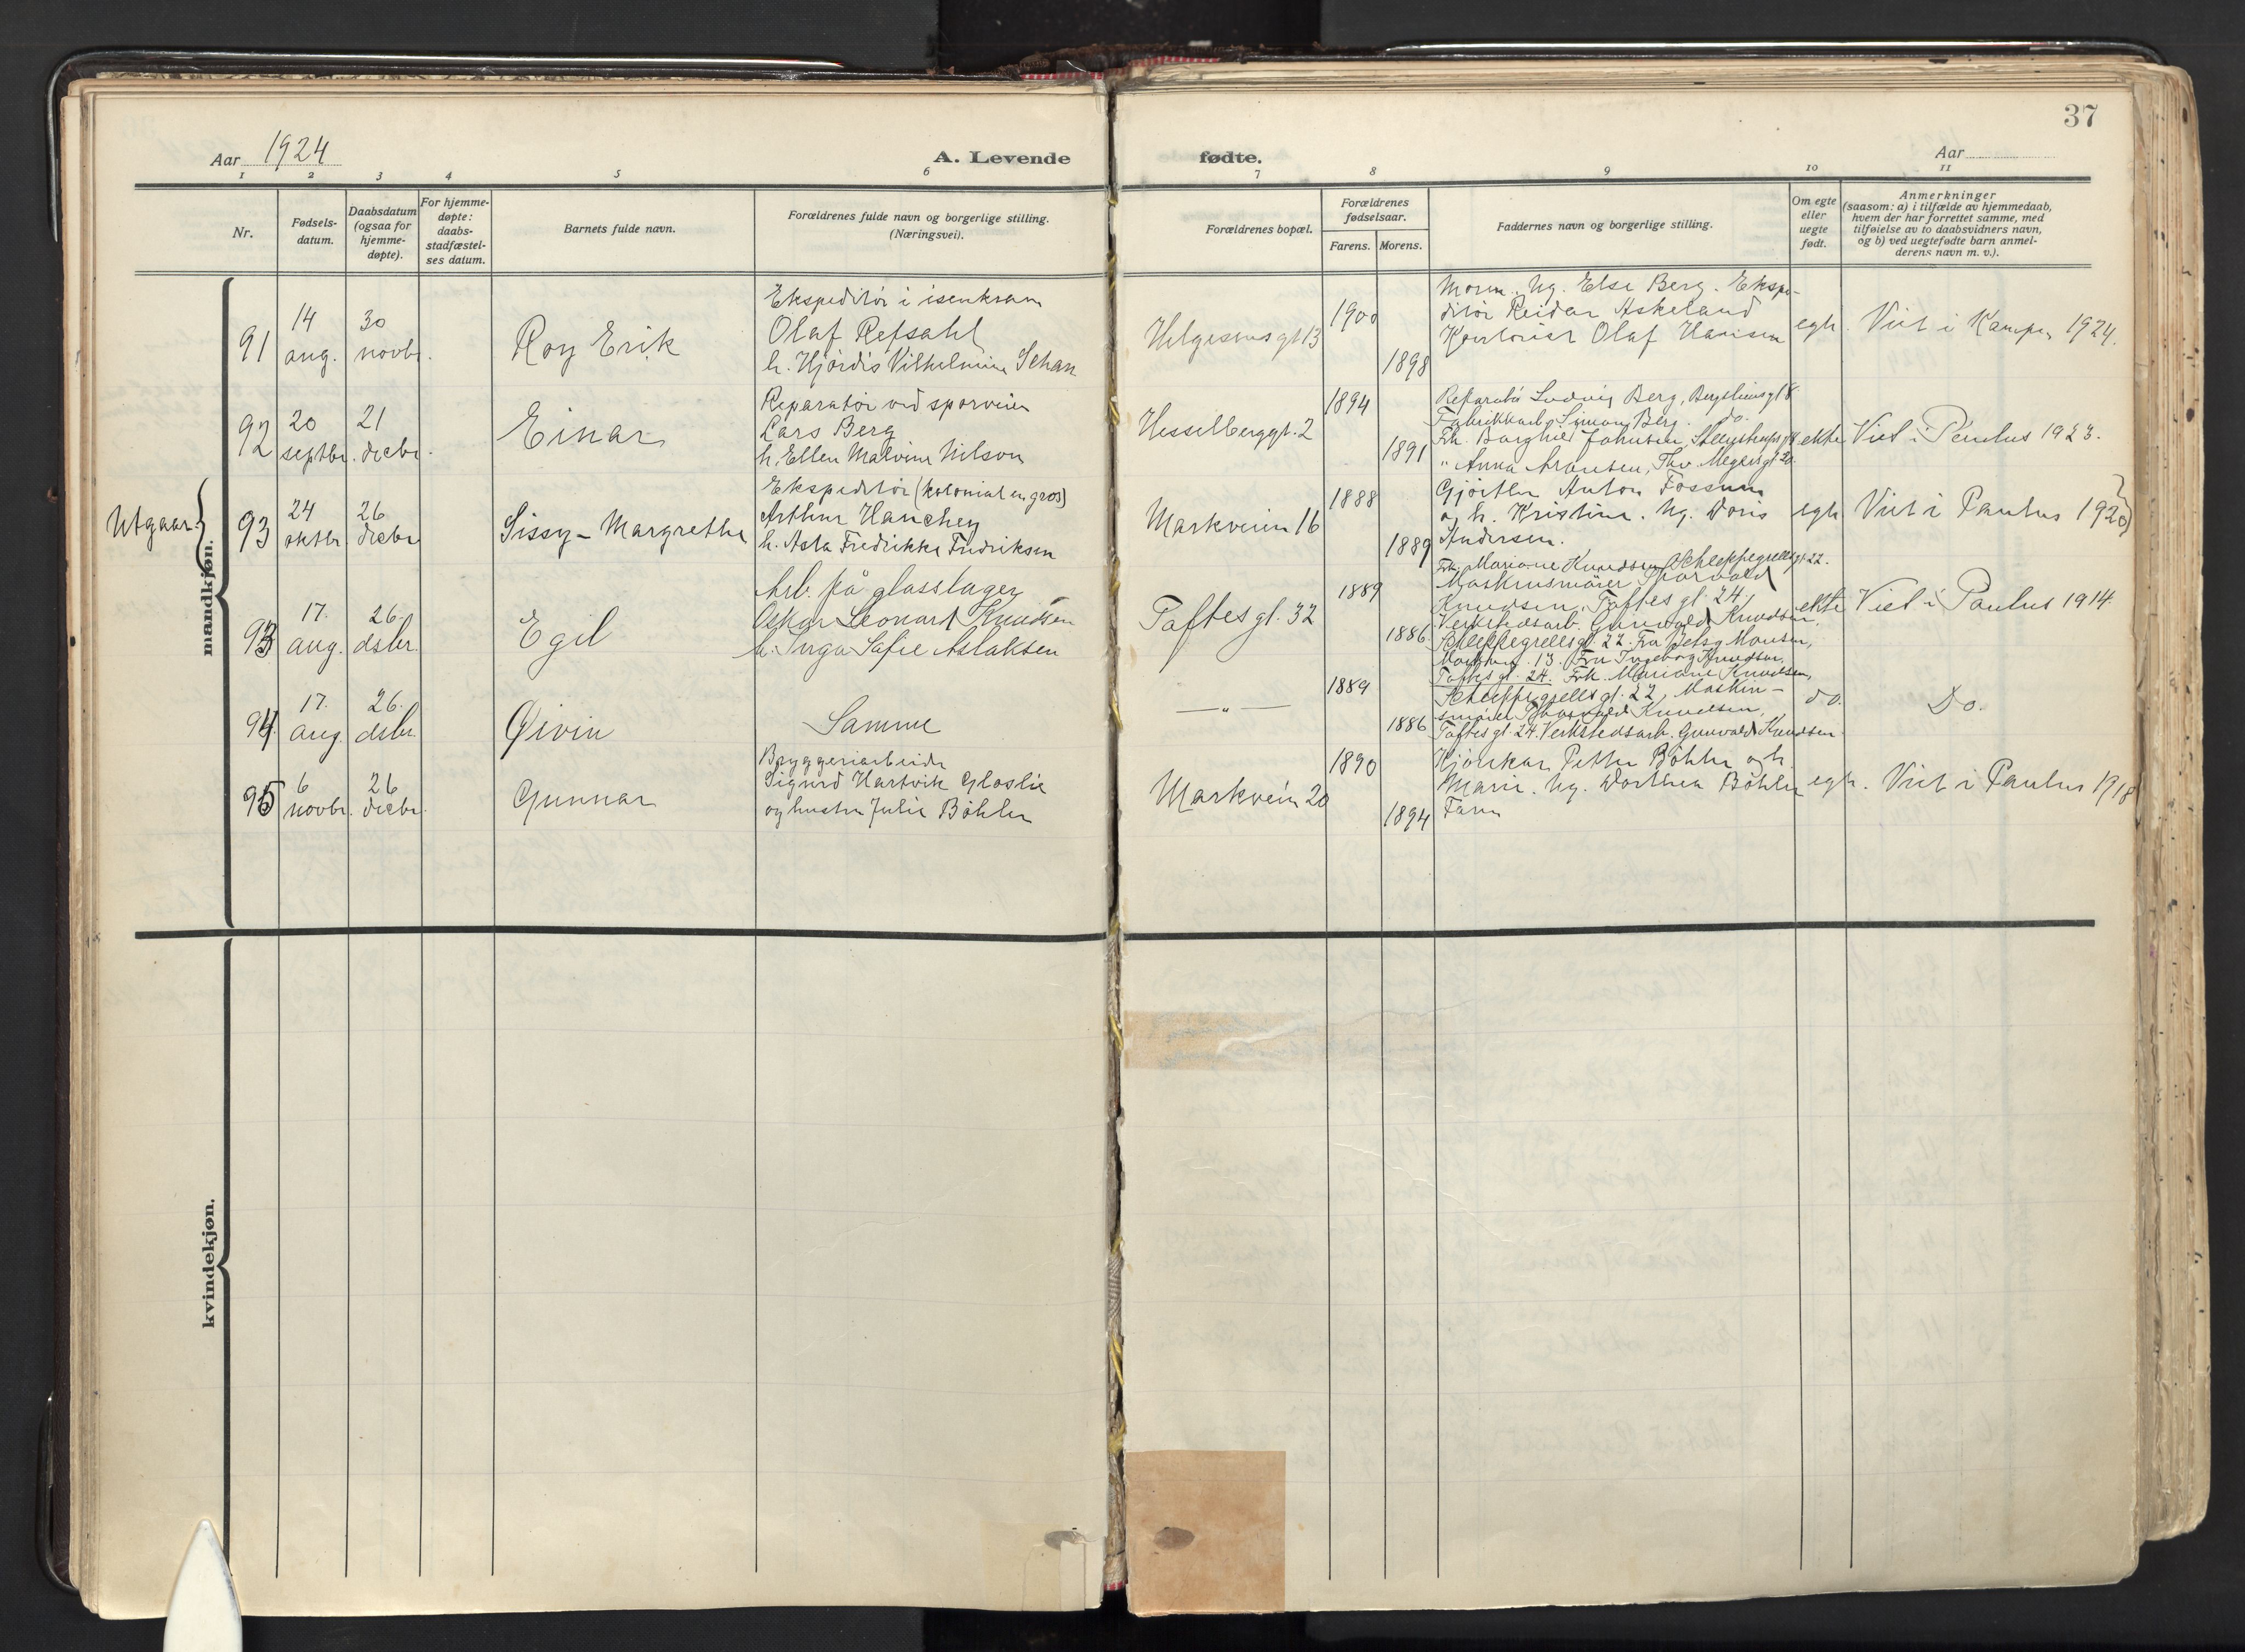 37
Aar 1924
A. Levende fødte.
Aar
1 2 3 4 5 6 7 8 9 10 11
Nr.
Fødsels-
datum.
Daabsdatum
(ogsaa for
hjemme-
døpte).
For hjemme-
døpte:
daabs-
stadfæstel-
ses datum.
Barnets fulde navn.
Forældrenes fulde navn og borgerlige stilling.
(Næringsvei).
Forældrenes bopæl.
Forældrenes
fødselsaar.
Farens. Morens.
Faddernes navn og borgerlige stilling.
Om egte
eller
uegte
født.
Anmerkninger
(saasom: a) i tilfælde av hjemmedaab,
hvem der har forrettet samme, med
tilføielse av to daabsvidners navn,
og b) ved uegtefødte barn anmel-
derens navn m. v.).
mandkjøn.
91
14
aug.
30
novbr.
Roy Erik
Ekspeditør i isenkram
Olaf Refsahl
h. Hjørdis Vilhelmine Schau
Helgesensgt 13
1900
1898
Moren. Ug. Else Berg. Ekspe-
ditør Reidar Askeland
Kontorist Olaf Hansen
egte
Viet i Kampen 1924.
92
20
septbr.
21
decbr.
Einar
Reparatør ved sporveien
Lars Berg
h. Ellen Malvine Nilson
Hesselberggt. 2
1894
1891
Reparatør Ludvig Berg, Bergsliensgt 8
Fabrikkarb. Simon Berg. do.
Frk. Borghild Johnsen,
" Anna Aronsen, Thv. Meyersgt. 20.
ekte
Viet i Paulus 1923.
Utgaar
93
24
oktbr.
26
decbr.
Sissy-Margrethe
Ekspeditør (kolonial en gros)
Arthur Hanchey
h. Asta Fredrikke Fredriksen
Markveien 16
1888
1889
Gjørtler Anton Fossum
og h. Kristine. Ug. Doris
Andersen.
egte
Viet i Paulus 1920
93
17.
aug.
26.
dsbr.
Egil
Arb. på glasslager
Oskar Leonart Knudsen
h. Inga Sofie Aslaksen
Toftes gt. 32
1889
1886
Frk. Mariane Knudsen, Schleppegrellsgt. 22.
Maskinsmører Thorvald
Knudsen, Toftes gt. 24,
Verkstedsarb. Gunvald Knudsen,
Schleppegrellsgt. 22. Fru Betsy Monsen,
13. Fru Ingeborg Knudsen,
Toftes gt. 24.
ekte
Viet i Paulus 1914.
94
17.
aug.
26.
dsbr.
Øivin
Samme
— " —
1889
1886
Frk. Mariane Knudsen,
Schleppegrellsgt. 22, Maskin-
smører Thorvald Knudsen,
Toftes gt. 24. Verkstedsarb. Gunvald Knudsen
do.
Do.
95
6
novbr.
26
decbr.
Gunnar
Bryggeriarbeider
Sigurd Hartvik Gloslie
og hustru Julie Bøhler
Markvein 20
1890
1894
Hjulskar Petter Bøhler og h.
Marie. Ug. Dorthea Bøhler
Faren
egte.
Viet i Paulus 1918
kvindekjøn.